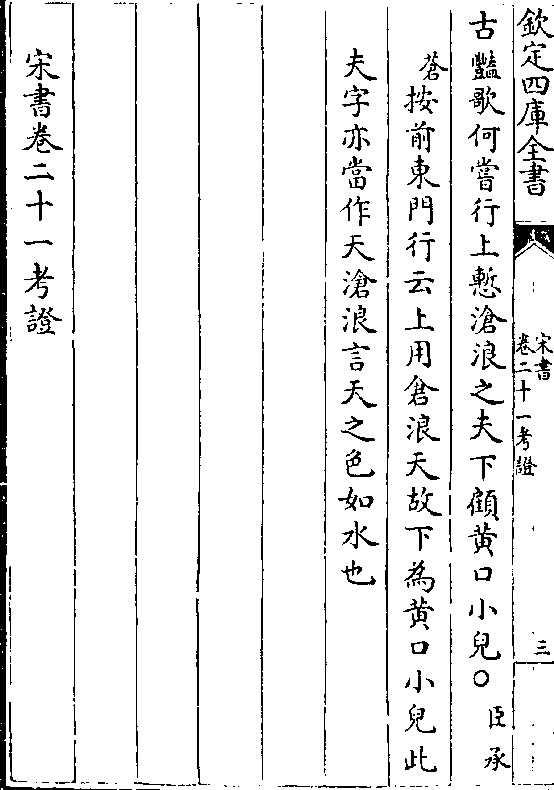 欽定四庫全書
宋書
卷二十一考證
三
古豔歌何嘗行上慙滄浪之夫下顧黄口小兒○臣承
蒼按前東門行云上用倉浪天故下為黄口小兒此
夫字亦當作天滄浪言天之色如水也
宋書卷二十一考證